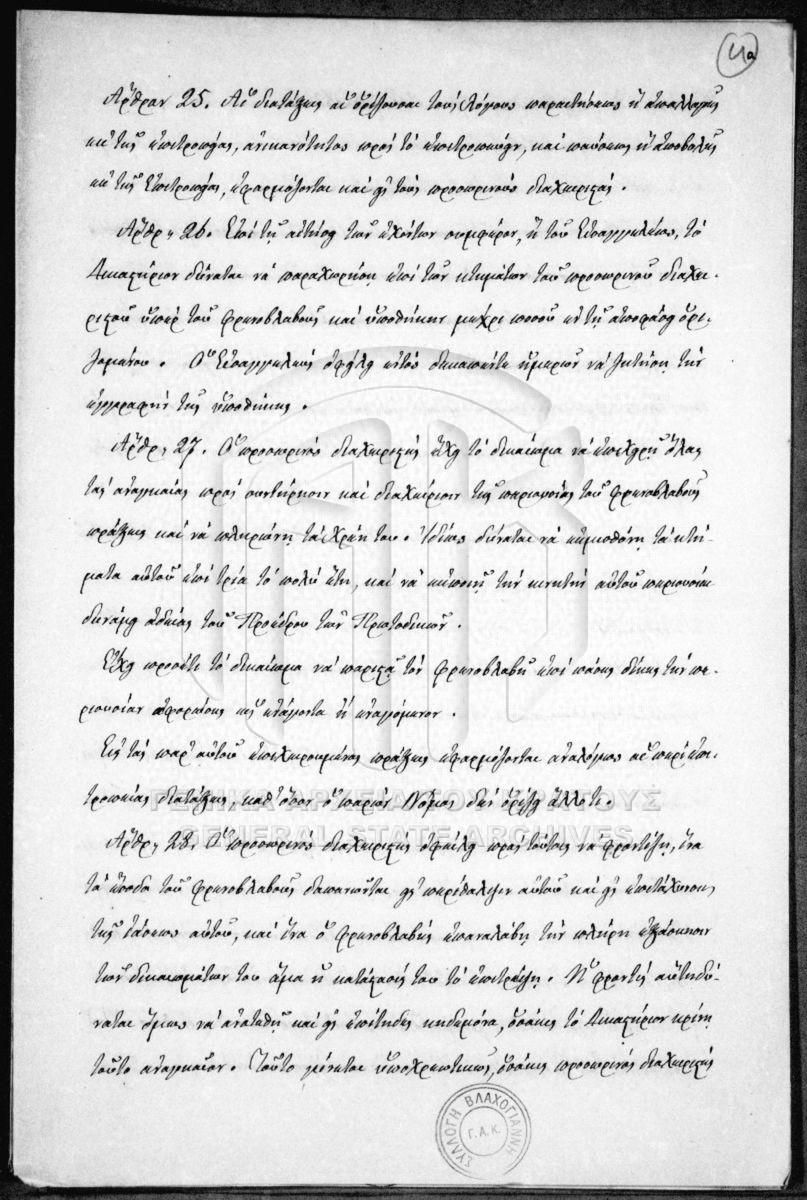 4a
Ἄρθρον 25. Αἱ διατάξεις αἱ ὁρίζουσαι τοὺς λόγους παραιτήσεως ἢ ἀπαλλαγῆς
ἐκ τῆς ἐπιτροπείας, ἀνικανότητος πρὸς τὸ ἐπιτροπεύειν, καὶ παύσεως ἢ ἀποβολῆς
ἐκ τῆς Ἐπιτροπείας, ἐφαρμόζονται καὶ εἰς τοὺς προσωρινοὺς διαχειριστάς.
Ἄρθρ. 26. Ἐπὶ τῇ αἰτήσει τῶν ἐχόντων συμφέρον, ἢ τοῦ Εἰσαγγελέως, τὸ
Δικαστήριον δύναται νὰ παραχωρήσῃ ἐπὶ τῶν κτημάτων τοῦ προσωρινοῦ διαχει-
ριστοῦ ὑπὲρ τοῦ φρενοβλαβοῦς καὶ ὑποθήκην μέχρι ποσοῦ ἐν τῇ ἀποφάσει ὁρι-
ζομένου. Ὁ Εἰσαγγελεὺς ὀφείλει ἐντὸς δεκαπέντε ἡμερῶν νὰ ζητήσῃ τὴν
ἐγγραφὴν τῆς ὑποθήκης.
Ἄρθρ. 27. Ὁ προσωρινὸς διαχειριστὴς ἔχει τὸ δικαίωμα νὰ ἐπιχειρῇ ὅλας
τὰς ἀναγκαίας πρὸς συντήρησιν καὶ διαχείρισιν τῆς περιουσίας τοῦ φρενοβλαβοῦς
πράξεις καὶ νὰ πληρώνῃ τὰ χρέη του. Ἰδίως δύναται νὰ ἐκμισθόνῃ τὰ κτή-
ματα αὐτοῦ ἐπὶ τρία τὸ πολὺ ἔτη, καὶ νὰ ἐκποιῇ τὴν κινητὴν αὐτοῦ περιουσίαν
δυνάμει ἀδείας τοῦ Προέδρου τῶν Πρωτοδικῶν.
Ἔχει προσέτι τὸ δικαίωμα νὰ παριστᾷ τὸν φρενοβλαβῆ ἐπὶ πάσης δίκης τὴν πε-
ριουσίαν ἀφορώσης ὡς ἐνάγοντα ἢ ἐναγόμενον.
Εἰς τὰς παρ' αὐτοῦ ἐπιχειρουμένας πράξεις ἐφαρμόζονται ἀναλόγως αἱ περὶ ἐπι-
τροπείας διατάξεις, καθ' ὅσον ὁ παρὼν Νόμος δὲν ὁρίζει ἄλλο τι.
Ἄρθρ. 28. Ὁ προσωρινὸς διαχειριστὴς ὀφείλει πρὸς τούτοις νὰ φροντίζῃ, ἵνα
τὰ ἔσοδα τοῦ φρενοβλαβοῦς δαπανῶνται εἰς περίθαλψιν αὐτοῦ καὶ εἰς ἐπιτάχυνσιν
τῆς ἰάσεως αὐτοῦ, καὶ ἵνα ὁ φρενοβλαβὴς ἐπαναλάβῃ τὴν πλήρη ἐξάσκησιν
τῶν δικαιωμάτων του ἅμα ἡ κατάστασίς του τὸ ἐπιτρέψῃ. Ἡ φροντὶς αὕτη δύ-
ναται ὅμως νὰ ἀνατεθῇ καὶ εἰς ἐπίτηδες κηδεμόνα, ὁσάκις τὸ Δικαστήριον κρίνῃ
τοῦτο ἀναγκαῖον. Τοῦτο γίνεται ὑποχρεωτικῶς, ὁσάκις προσωρινὸς διαχειριστὴς
ΓΕΝΙΚΑ ΑΡΧΕΙΑ ΤΟΥ ΚΡΑΤΟΥΣ
GENERAL STATE ARCHIVES
ΣΥΛΛΟΓΗ ΒΛΑΧΟΓΙΑΝΝΗ
Γ.Α.Κ.